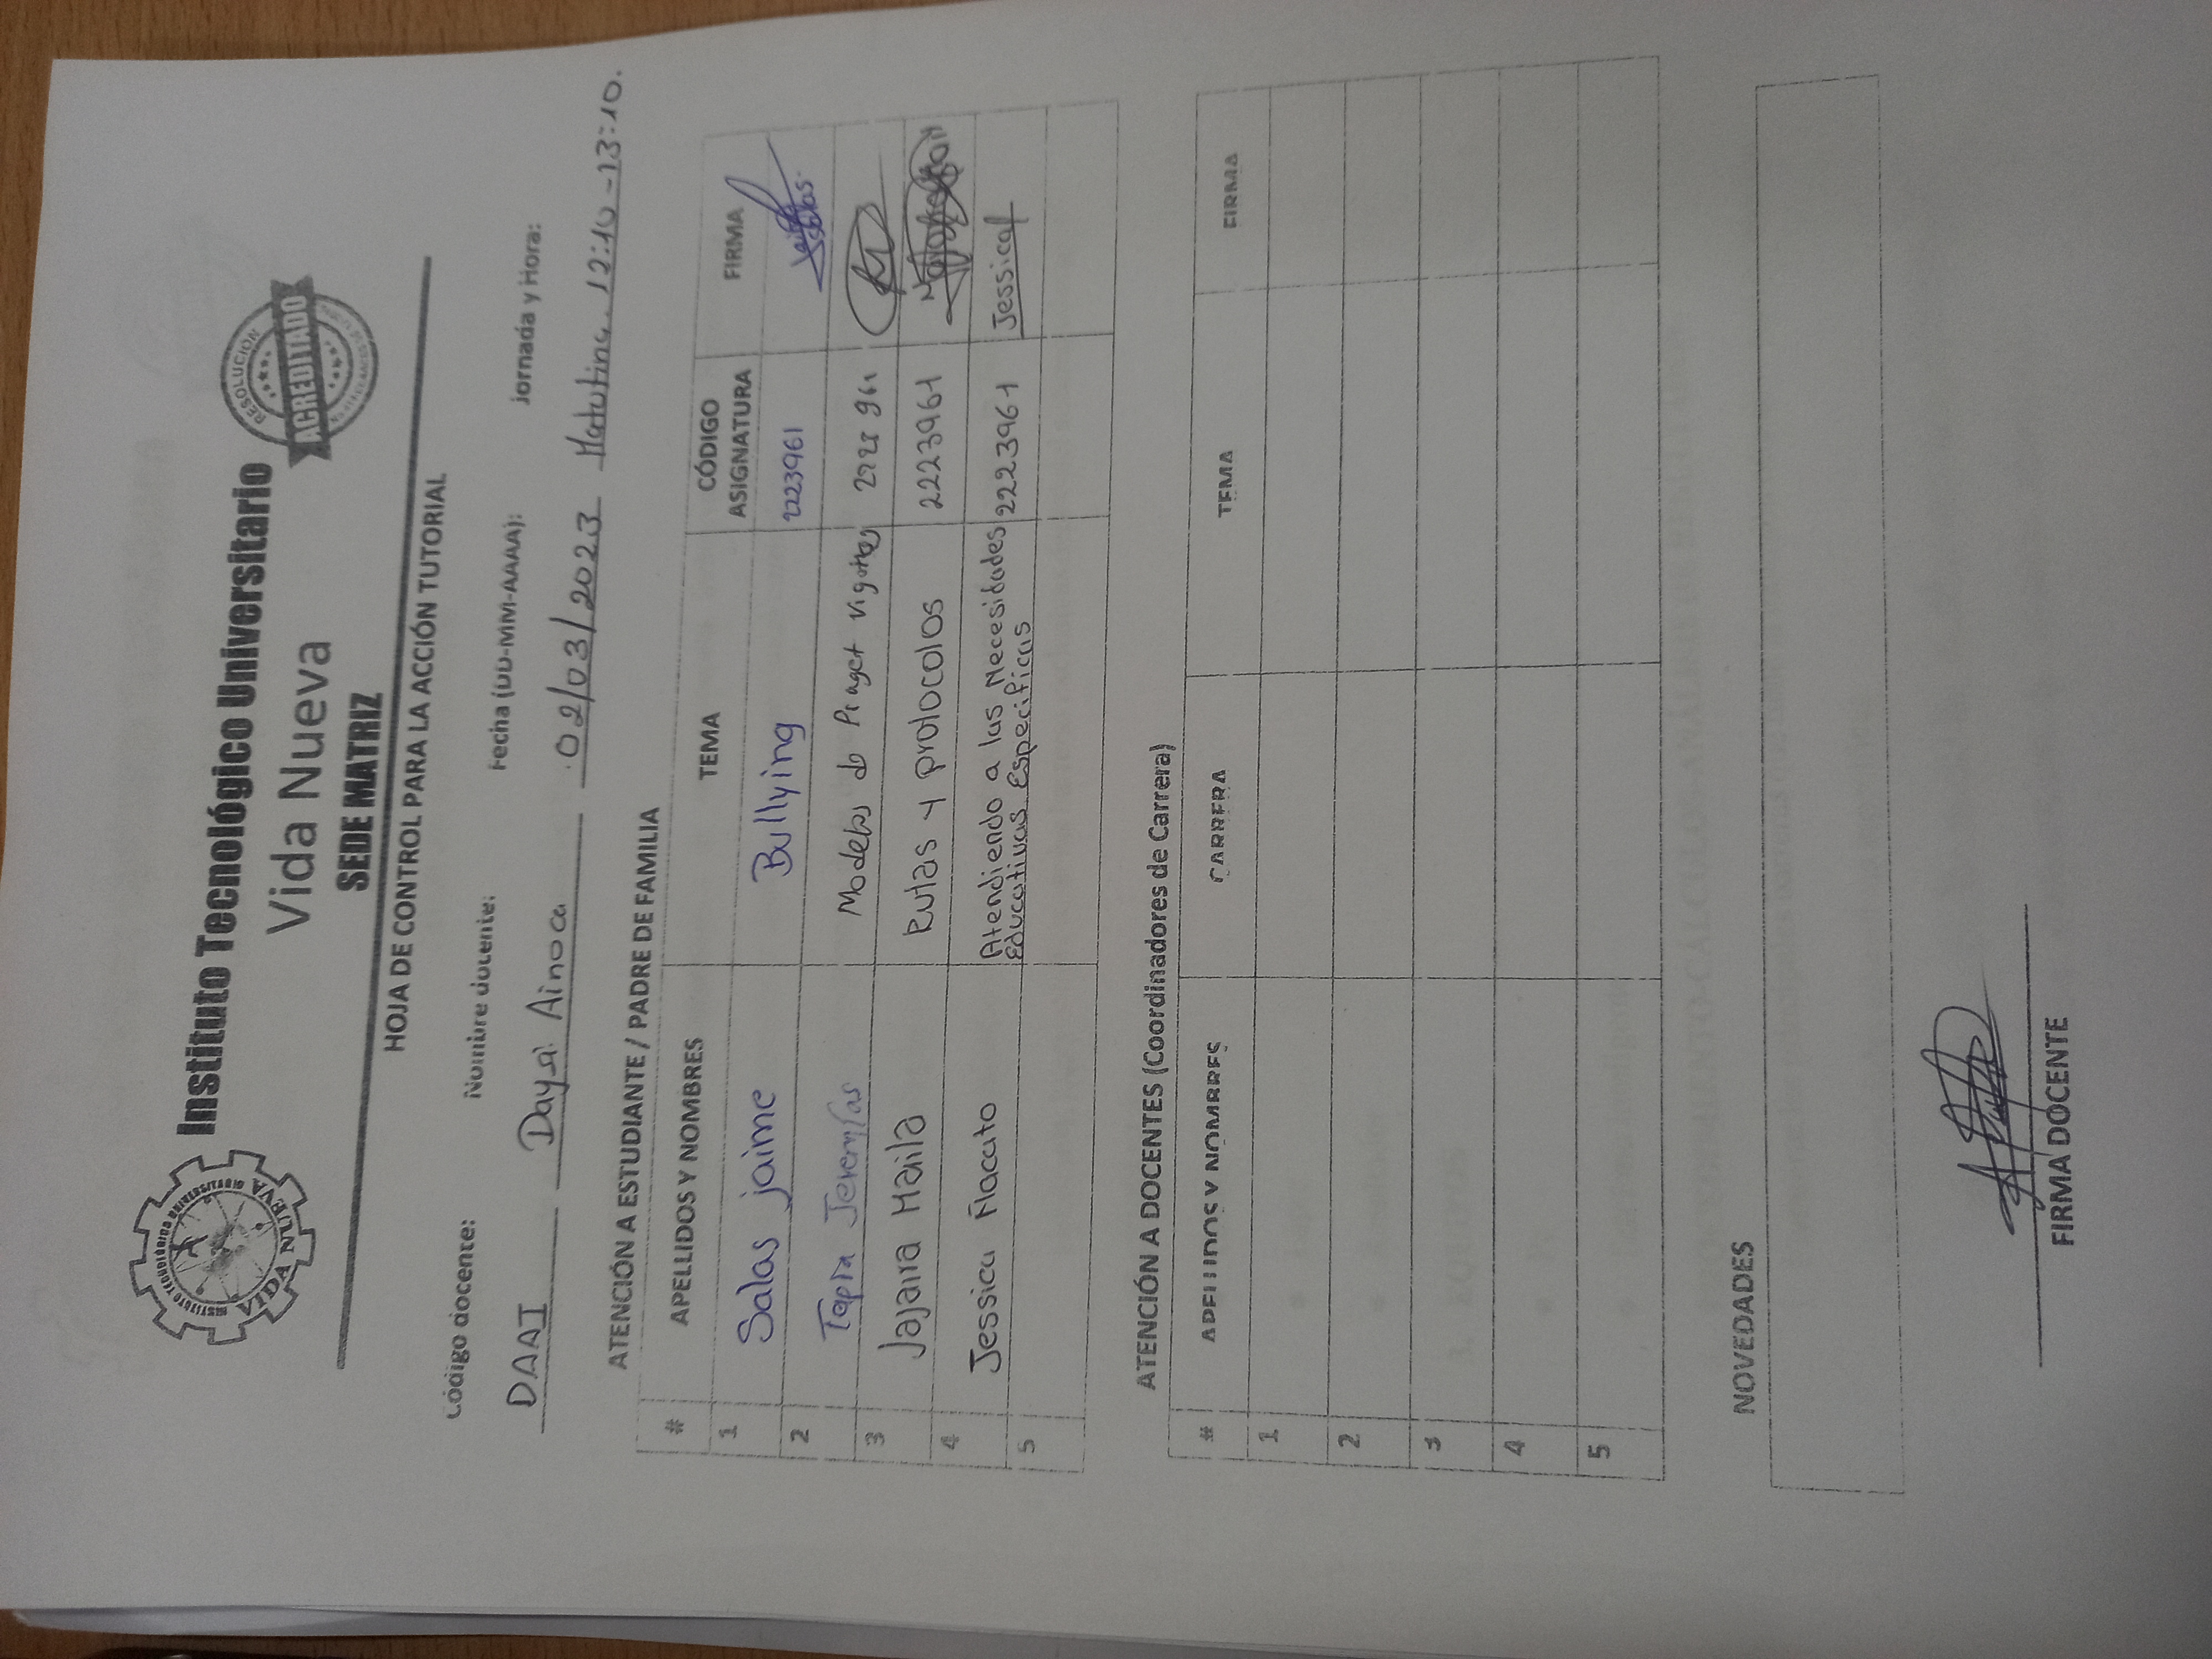 INSTITUTO TECNOLÓGICO UNIVERSITARIO
VIDA NUEVA
Instituto Tecnológico Universitario
Vida Nueva
SEDE MATRIZ
RESOLUCIÓN
ACREDITADO
HOJA DE CONTROL PARA LA ACCIÓN TUTORIAL
Código docente: Nombre docente: Fecha (DD-MM-AAAA): Jornada y Hora:
DAAI Daysi Ainoca 02/03/2023 Matutina. 12:10-13:10.
ATENCIÓN A ESTUDIANTE / PADRE DE FAMILIA
# APELLIDOS Y NOMBRES TEMA CÓDIGO ASIGNATURA FIRMA
1 Salas jaime Bullying 2223961
2 Tapia Jeremías Modelos de Piaget
3 Jajaira Maila Rutas y protocolos 2223961
4 Jessica Ñacato Atendiendo a las Necesidades 2223961 Jessica
Educativas Especificas
5
ATENCIÓN A DOCENTES (Coordinadores de Carrera)
# APELLIDOS Y NOMBRES CARRERA TEMA FIRMA
1
2
3
4
5
NOVEDADES
FIRMA DOCENTE